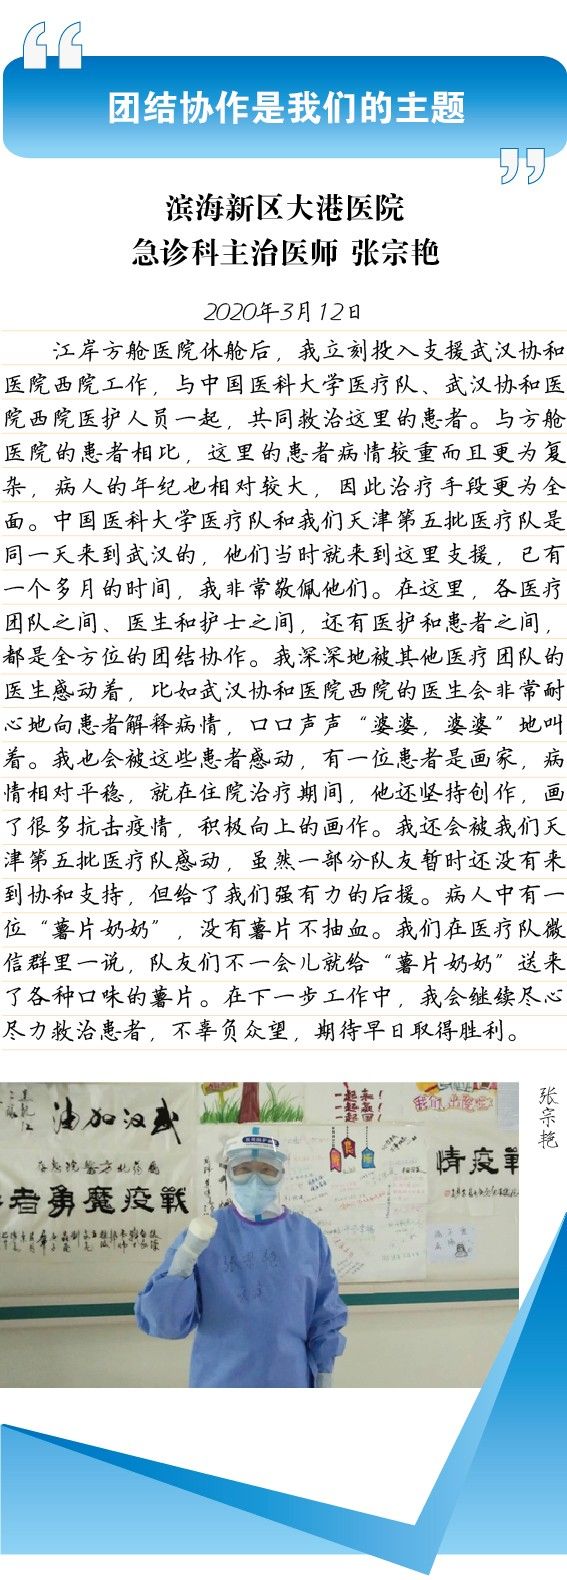 团结协作是我们的主题
滨海新区大港医院
急诊科主治医师 张宗艳
2020年3月12日
江岸方舱医院休舱后，我立刻投入支援武汉协和
医院西院工作，与中国医科大学医疗队、武汉协和医
院西院医护人员一起，共同救治这里的患者。与方舱
医院的患者相比，这里的患者病情较重而且更为复
杂，病人的年纪也相对较大，因此治疗手段更为全
面。中国医科大学医疗队和我们天津第五批医疗队是
同一天来到武汉的，他们当时就来到这里支援，已有
一个多月的时间，我非常敬佩他们。在这里，各医疗
团队之间、医生和护士之间，还有医护和患者之间，
都是全方位的团结协作。我深深地被其他医疗团队的
医生感动着，比如武汉协和医院西院的医生会非常耐
心地向患者解释病情，口口声声“婆婆，婆婆”地叫
着。我也会被这些患者感动，有一位患者是画家，病
情相对平稳，就在住院治疗期间，他还坚持创作，画
了很多抗击疫情，积极向上的画作。我还会被我们天
津第五批医疗队感动，虽然一部分队友暂时还没有来
到协和支持，但给了我们强有力的后援。病人中有一
位“薯片奶奶”，没有薯片不抽血。我们在医疗队微
信群里一说，队友们不一会儿就给“薯片奶奶”送来
了各种口味的薯片。在下一步工作中，我会继续尽心
尽力救治患者，不辜负众望，期待早日取得胜利。
张宗艳
油加汉武
者勇魔疫戰
情疫戰
张宗艳